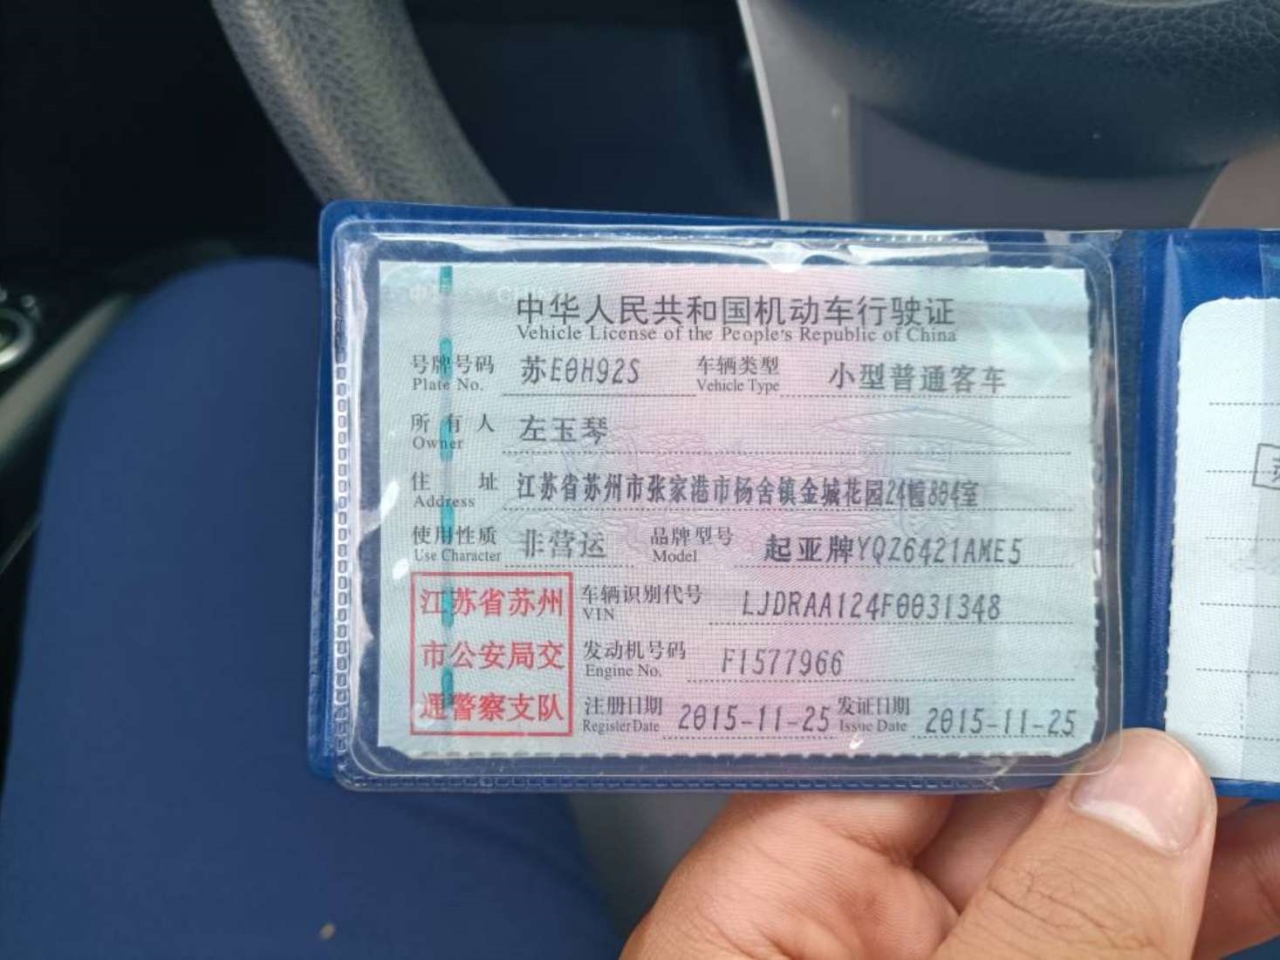 中华人民共和国机动车行驶证
Vehicle License of the People's Republic of China
号牌号码 苏E0H92S 车辆类型 小型普通客车
Plate No. Vehicle Type
所有人 左玉琴
Owner
住址 江苏省苏州市张家港市杨舍镇金城花园24幢804室
Address
使用性质 非营运 品牌型号 起亚牌YQZ6421AME5
Use Character Model
江苏省苏州
市公安局交
通警察支队
车辆识别代号 LJDRAA124F0031348
VIN
发动机号码 F1577966
Engine No.
注册日期 2015-11-25 发证日期 2015-11-25
Register Date Issue Date